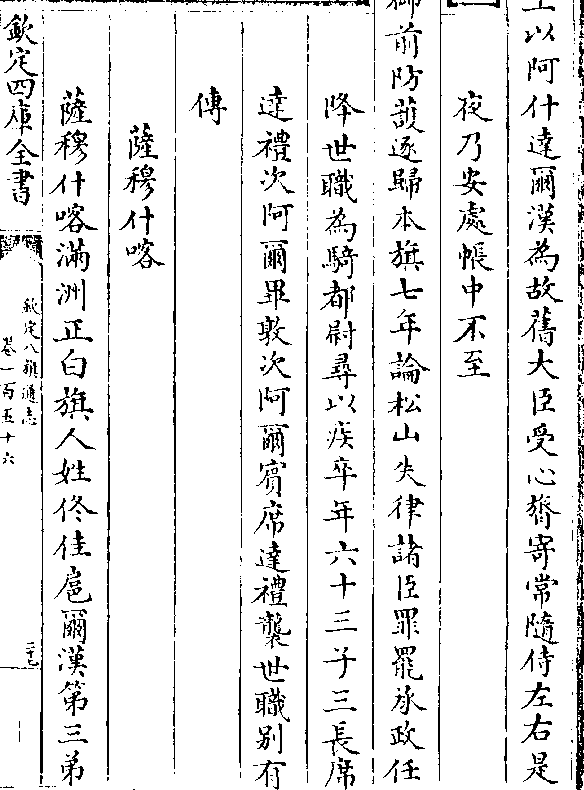 上以阿什達爾漢為故舊大臣受心膂寄常隨侍左右是
夜乃安處帳中不至
御前防護逐歸本旗七年論松山失律諸臣罪罷承政任
降世職為騎都尉尋以疾卒年六十三子三長席
達禮次阿爾畢敦次阿爾賓席達禮襲世職别有
傳
薩穆什喀
薩穆什喀滿洲正白旗人姓佟佳扈爾漢第三弟
欽定四庫全書
欽定八旗通志
卷一百五十六